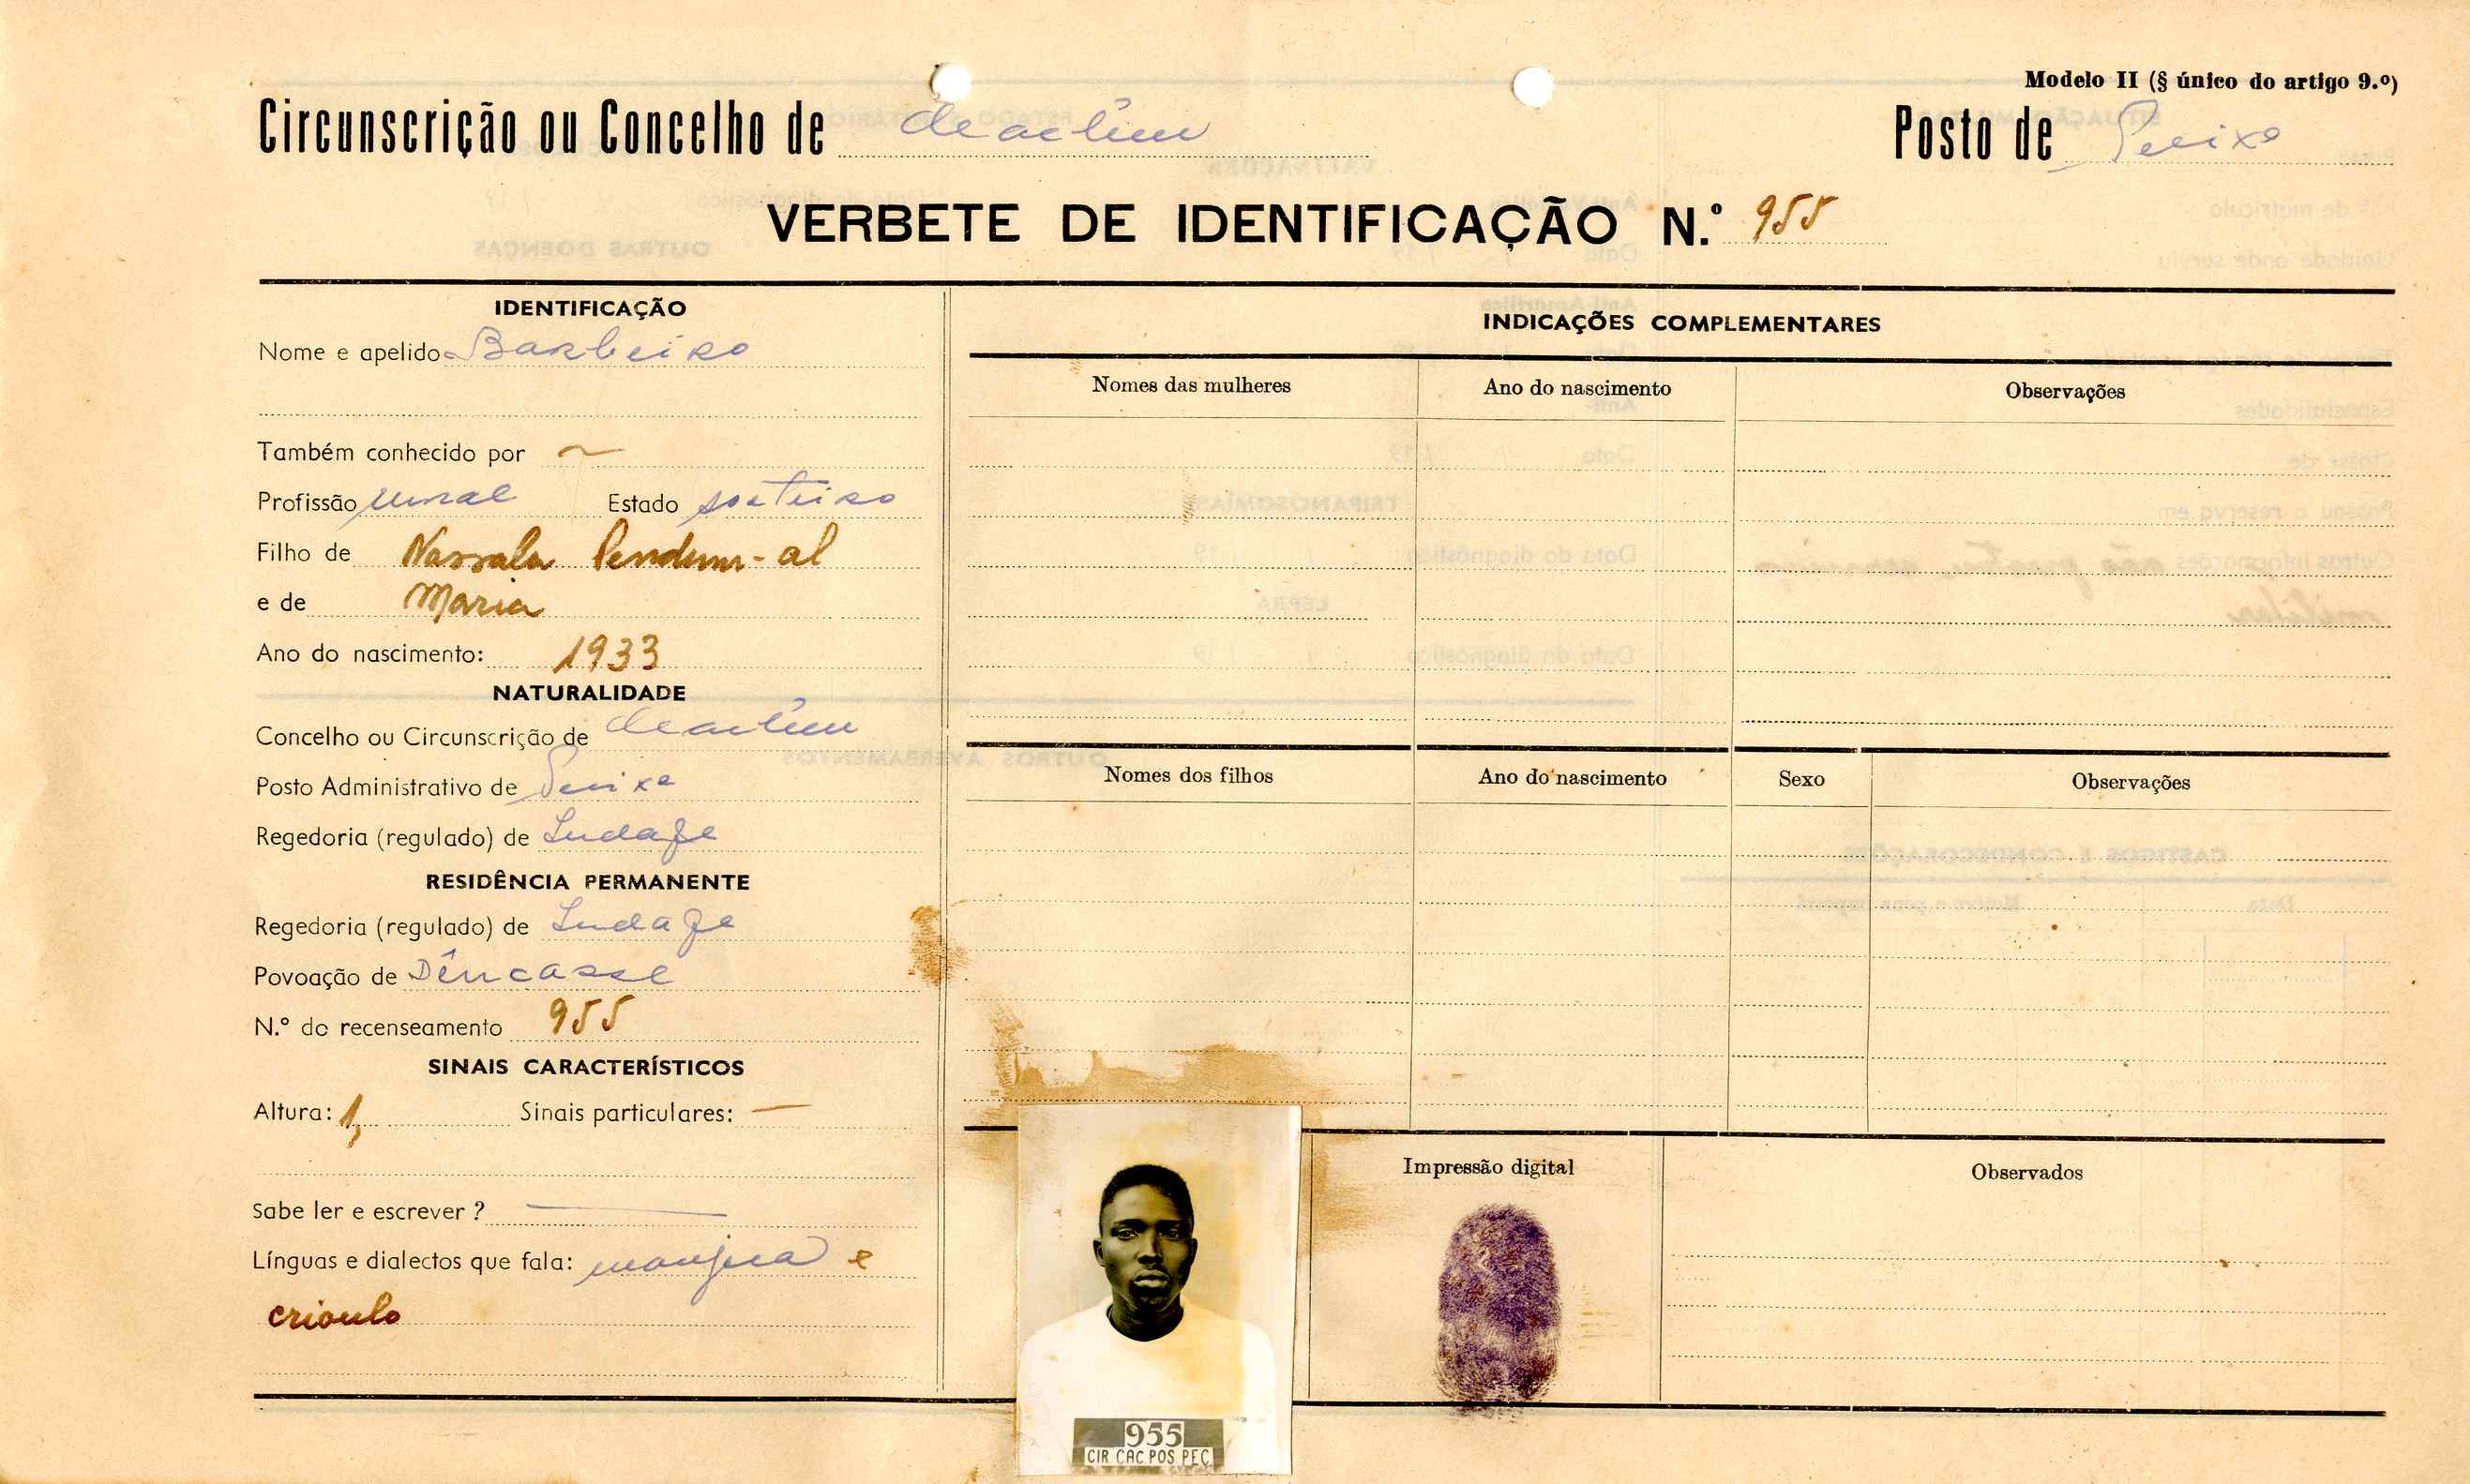 Modelo II (§ único do artigo 9.º)
Circunscrição ou Concelho de Cacheu Posto de Pecixe
VERBETE DE IDENTIFICAÇÃO N.º 955
IDENTIFICAÇÃO
Nome e apelido Barbeiro
Também conhecido por ~
Profissão rural Estado solteiro
Filho de Nassala
e de Maria
Ano do nascimento: 1933
NATURALIDADE
Concelho ou Circunscrição de Cacheu
Posto Administrativo de Pecixe
Regedoria (regulado) de
RESIDÊNCIA PERMANENTE
Regedoria (regulado) de
Povoação de Dêncasse
N.º do recenseamento 955
SINAIS CARACTERÍSTICOS
Altura: 1, Sinais particulares: —
Sabe ler e escrever ? —
Línguas e dialectos que fala: manjaca e
crioulo
INDICAÇÕES COMPLEMENTARES
Nomes das mulheres Ano do nascimento Observações
Nomes dos filhos Ano do nascimento Sexo Observações
Impressão digital Observados
955
CIR CAC POS PEC